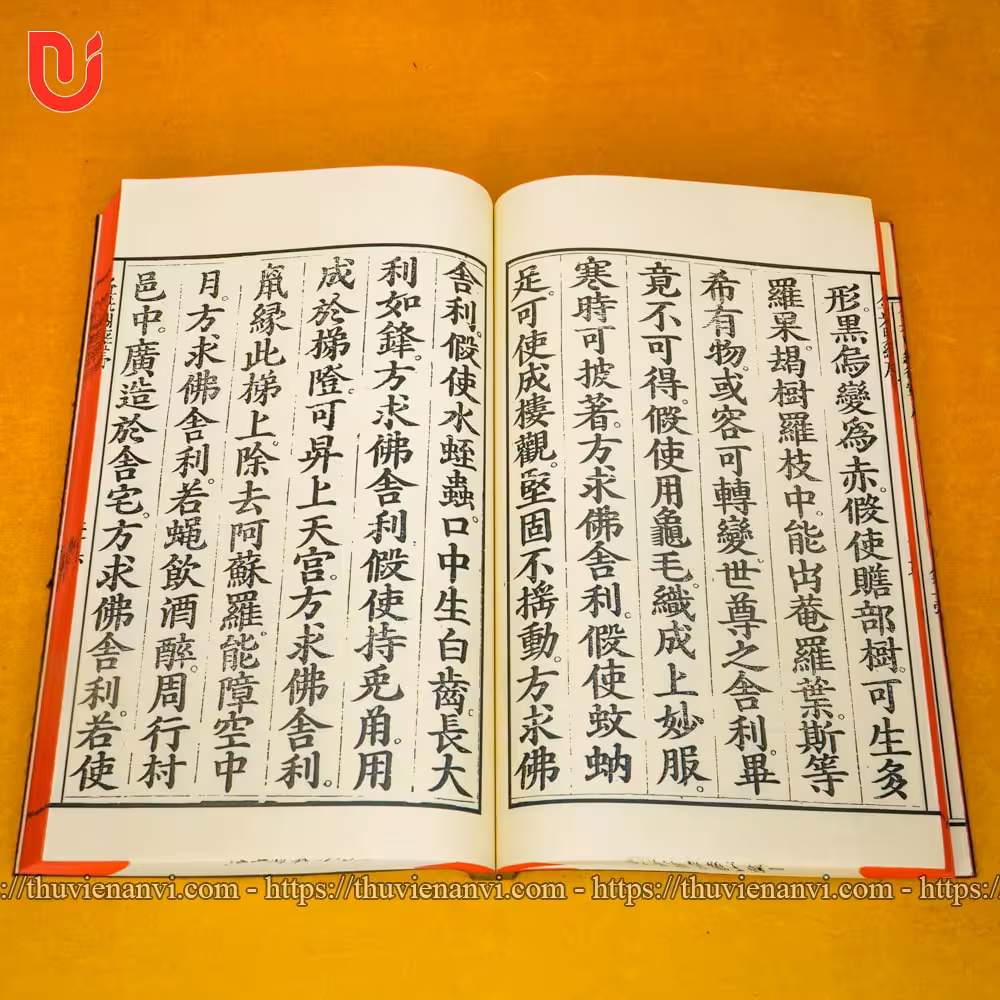 形。黑烏變爲赤。假使瞻部樹。可生多
羅果。朅樹羅枝中。能出菴羅葉。斯等
希有物。或容可轉變。世尊之舍利。畢
竟不可得。假使用龜毛。織成上妙服。
寒時可披著。方求佛舍利。假使蚊蚋
足。可使成樓觀。堅固不搖動。方求佛
舍利。假使水蛭蟲。口中生白齒。長大
利如鋒。方求佛舍利假使持兔角。用
成於梯隥。可昇上天宮。方求佛舍利。
鼠緣此梯上。除去阿蘇羅。能障空中
月。方求佛舍利。若蠅飲酒醉。周行村
邑中。廣造於舍宅。方求佛舍利。若使
https://thuvienanvi.com - https://thuvienanvi.com - https://thuvienanvi.com - https